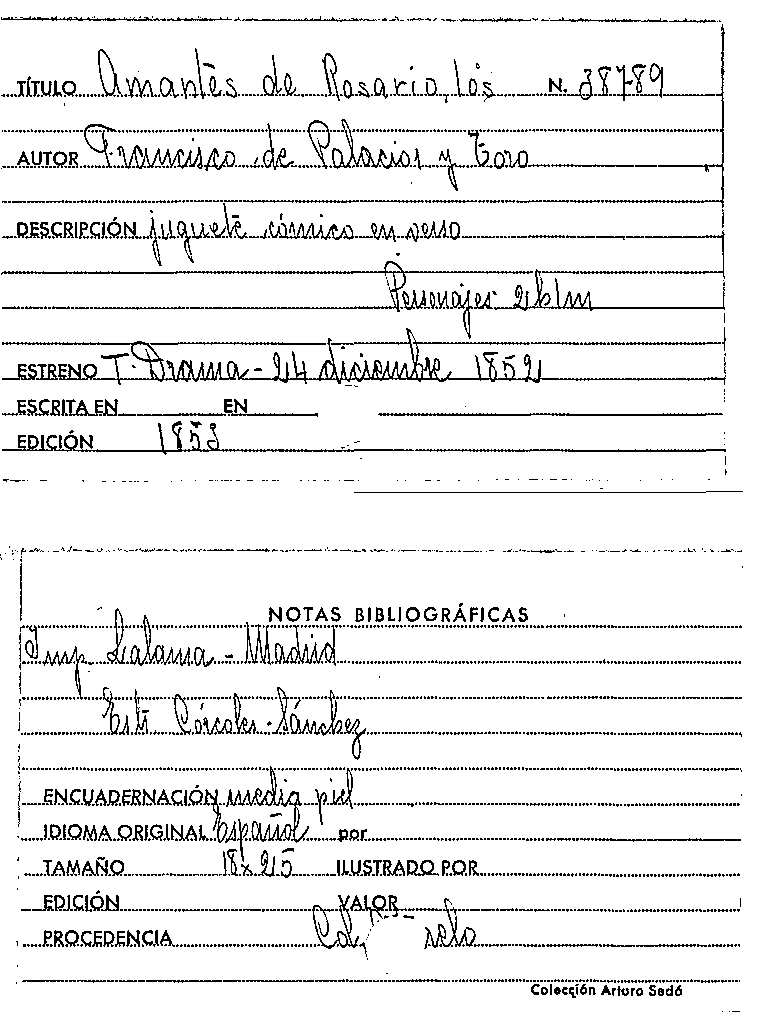 TÍTULO Amantes de Rosario, los N. 38789
AUTOR Francisco de Palacios y Toro
DESCRIPCIÓN juguete cómico en verso
Personajes 2h/m
ESTRENO T. Drama - 24 diciembre 1852
ESCRITA EN EN
EDICIÓN 1853
NOTAS BIBLIOGRÁFICAS
Imp. Lalama - Madrid
Estr. Córcoles - Sánchez
ENCUADERNACIÓN media piel
IDIOMA ORIGINAL Español por
TAMAÑO 18x25 ILUSTRADO POR
EDICIÓN VALOR
PROCEDENCIA Col.
Colección Arturo Sedó